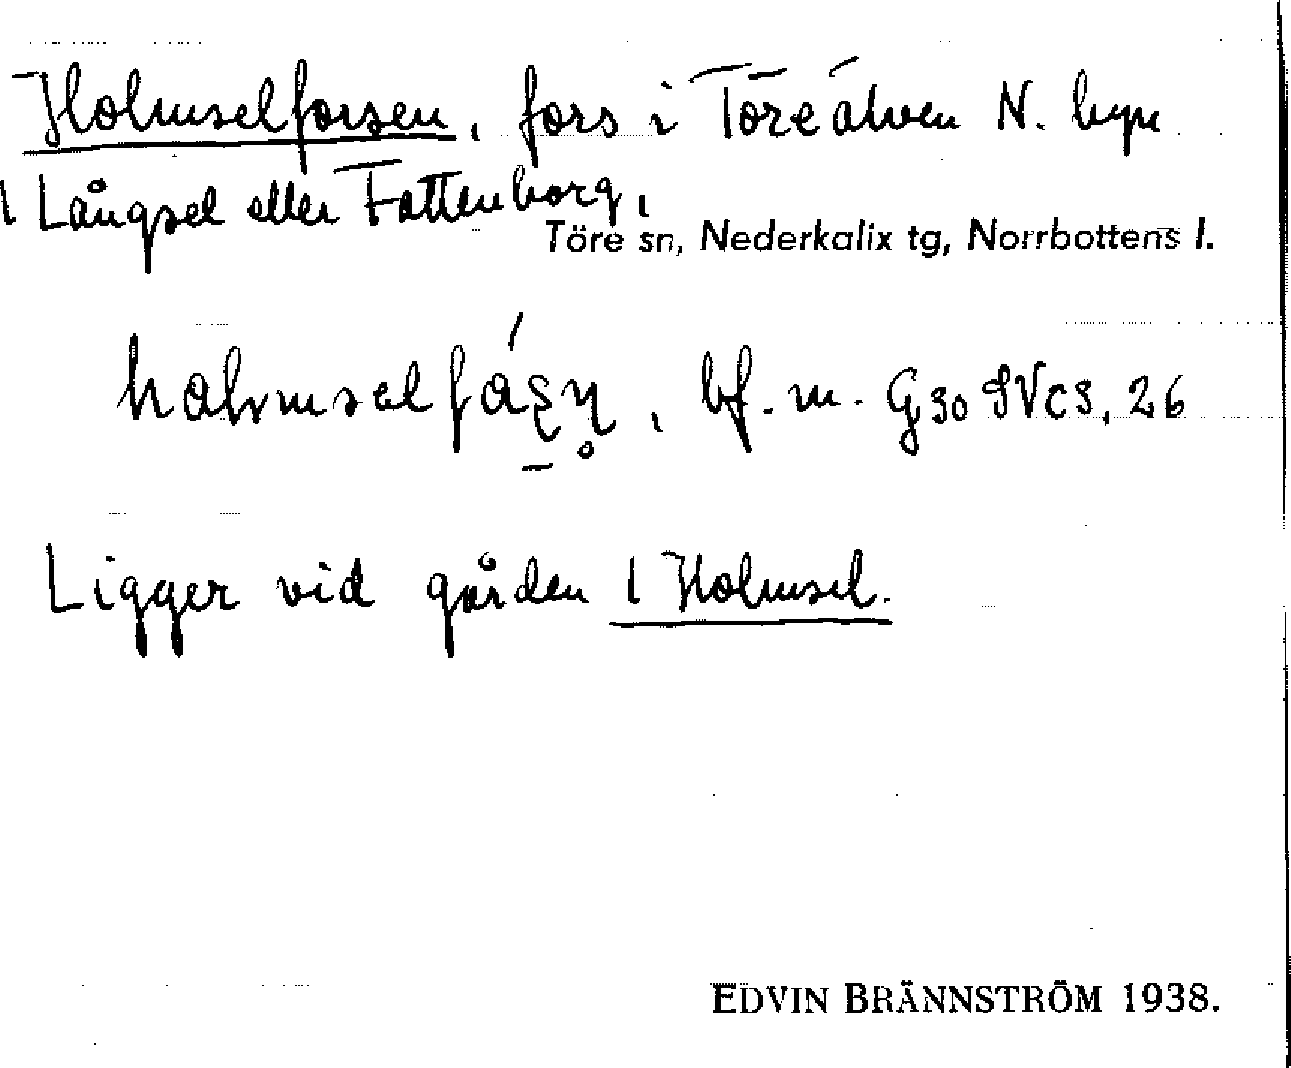 Holmselforsen, fors i Töre älven N. byn
1 Långsel eller Fattenborg,
Töre sn, Nederkalix tg, Norrbottens l.
bf. m. G30 SVCS, 26
Ligger vid gården 1 Holmsel.
EDVIN BRÄNNSTRÖM 1938.